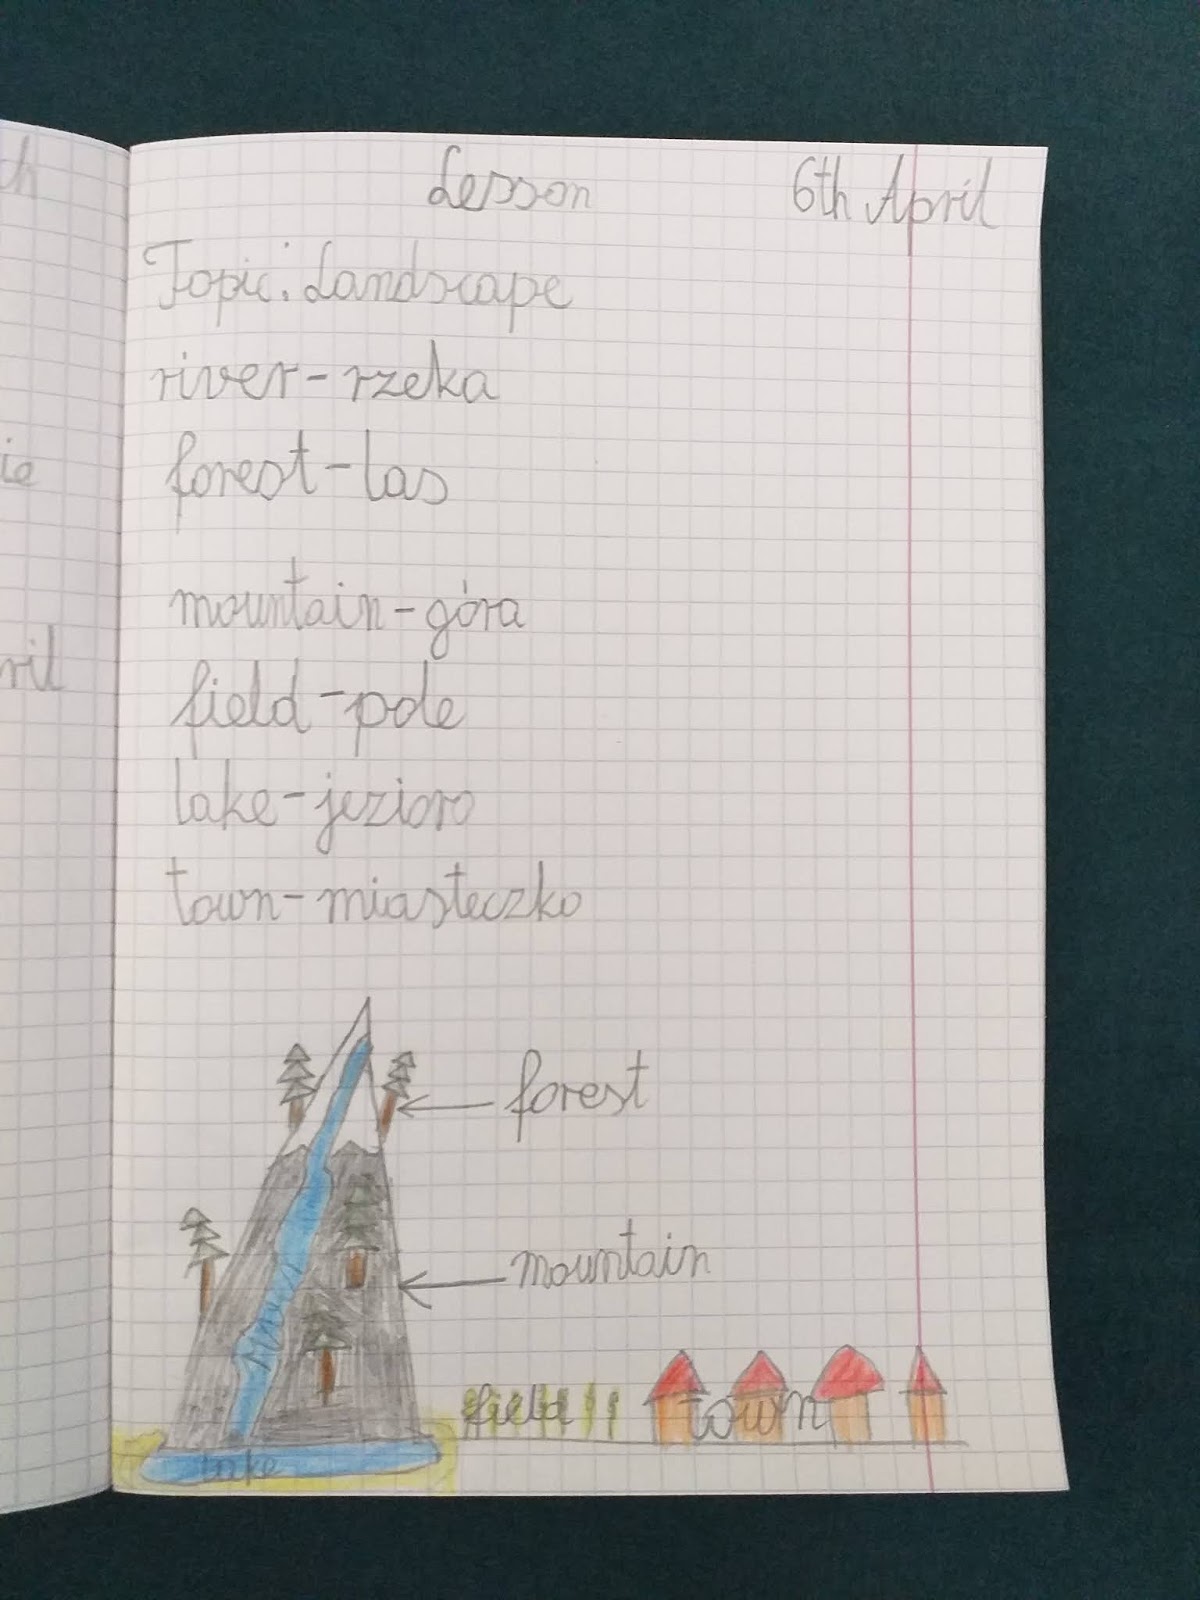 Lesson 6th April
Topic: Landscape
river - rzeka
forest - las
mountain - góra
field - pole
lake - jezioro
town - miasteczko
forest
mountain
field town
lake